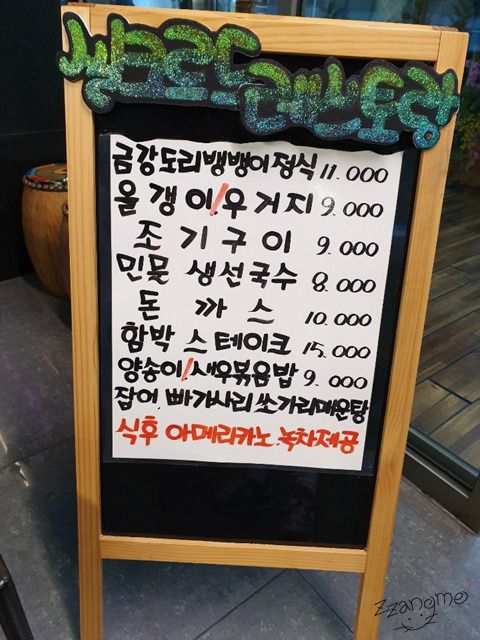 실크로드
레스토랑
금강도리뱅뱅이정식 11.000
올갱이/우거지 9.000
조기구이 9.000
민물 생선국수 8.000
돈까스 10.000
함박 스테이크 15.000
양송이/새우볶음밥 9.000
잡어, 빠가사리 쏘가리매운탕
식후 아메리카노.녹차제공
zzangmo